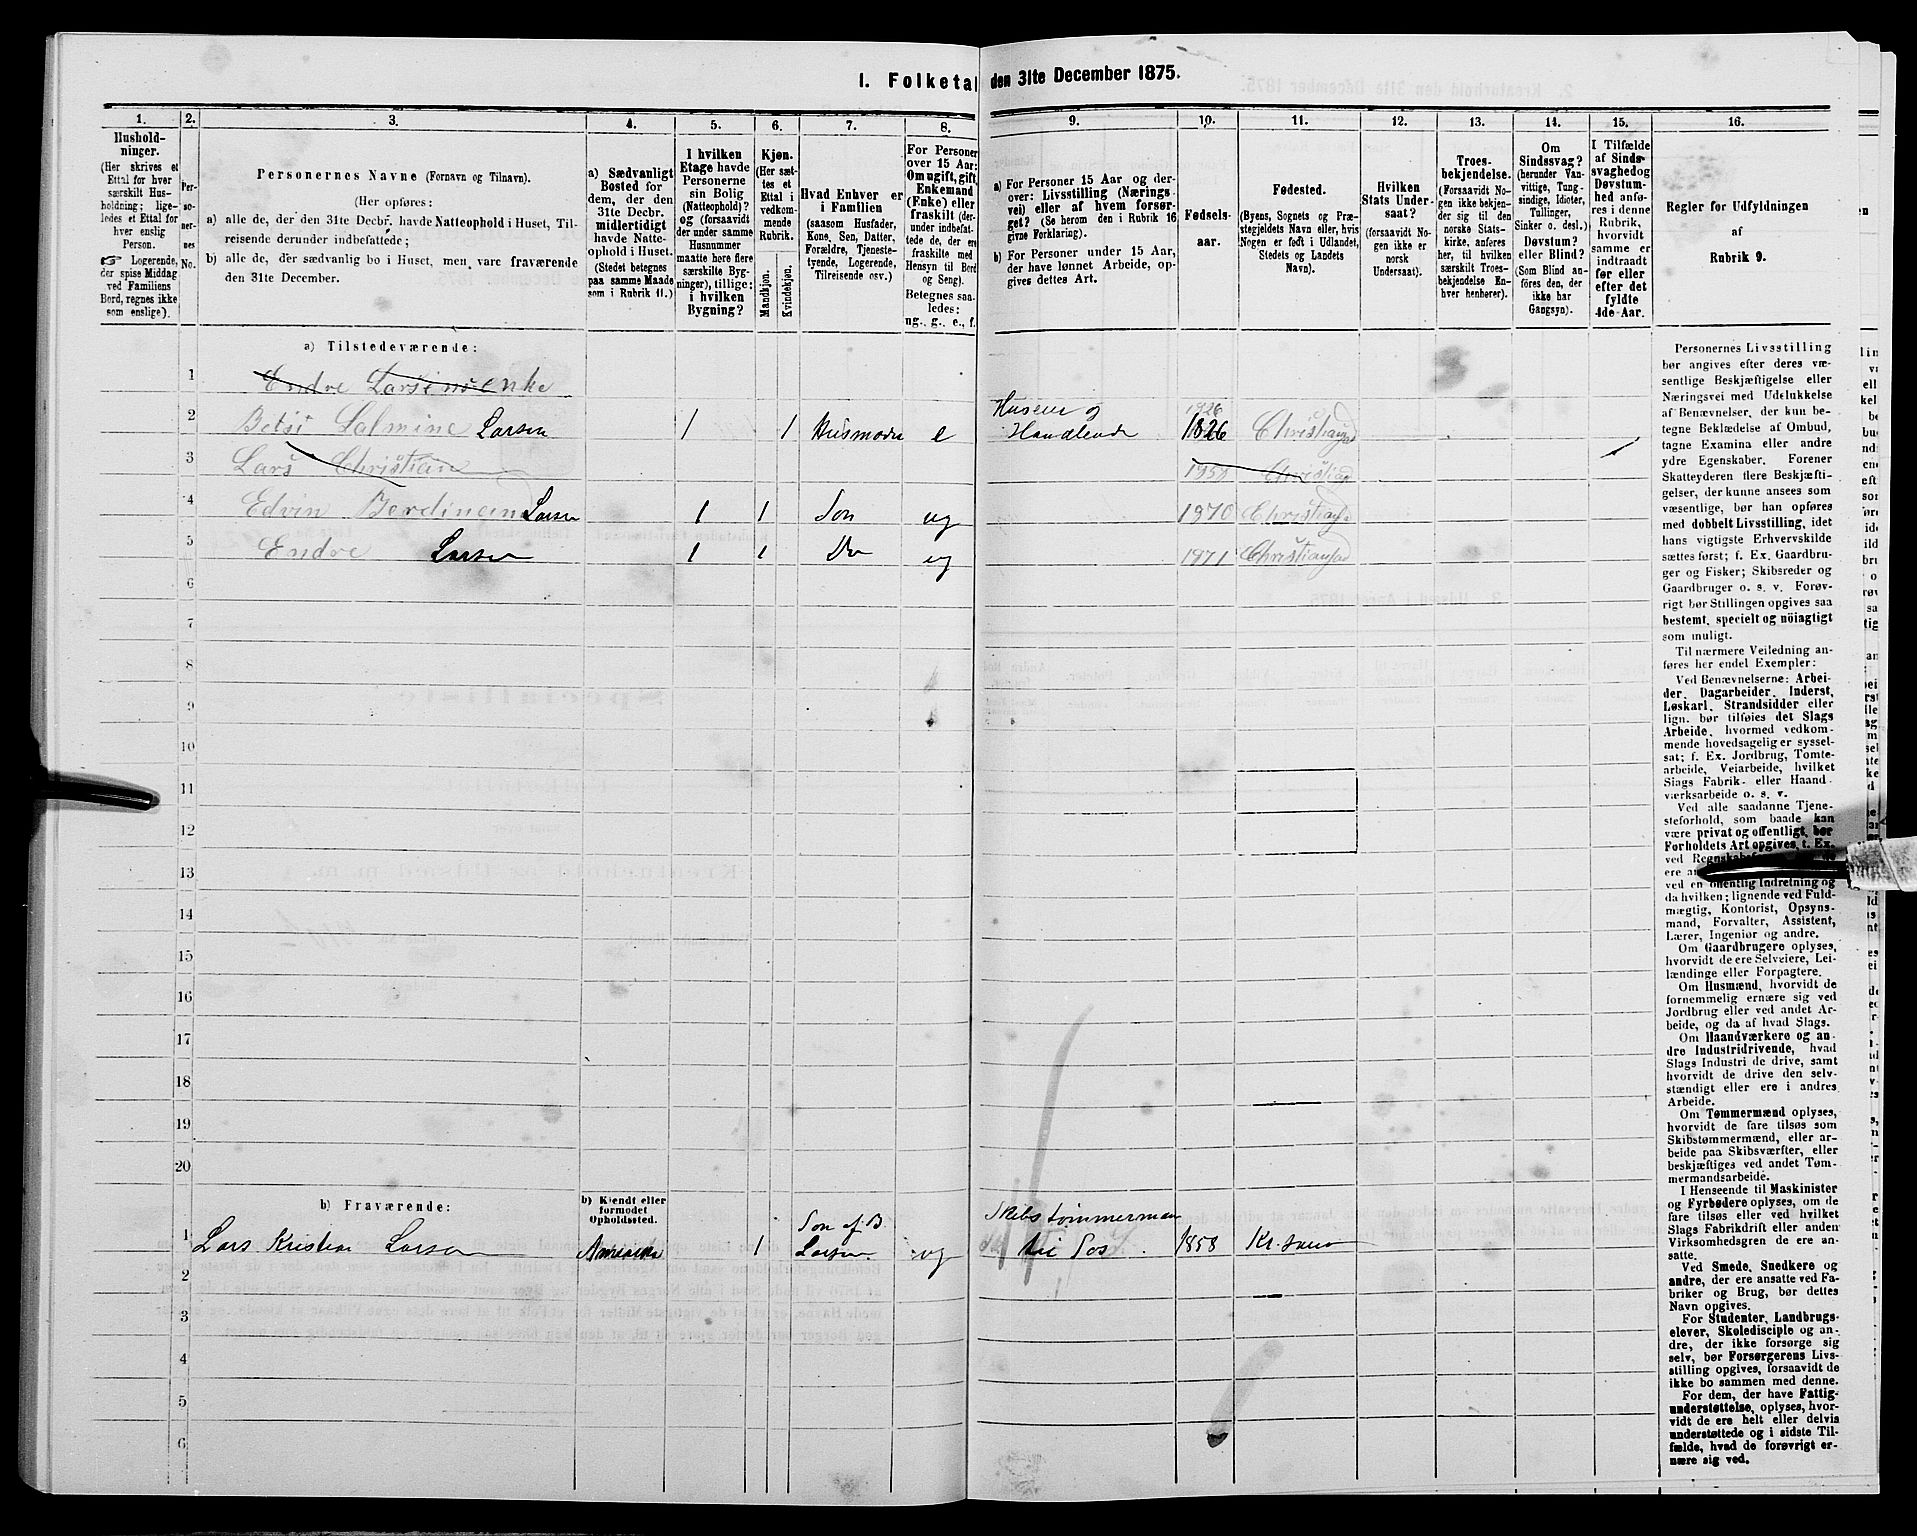 I. Folketal den 31te December 1875.
1.
Hushold-
ninger.
(Her skrives et
Ettal for hver
særskilt Hus-
holdning; lige-
ledes et Ettal for
hver enslig
Person.
☞ Logerende,
der spise Middag
ved Familiens
Bord, regnes ikke
som enslige).
2.
Per-
so-
ner-
nes
No.
3.
Personernes Navne (Fornavn og Tilnavn).
(Her opføres:
a) alle de, der den 31te Decbr. havde Natteophold i Huset, Til-
reisende derunder indbefattede;
b) alle de, der sædvanlig bo i Huset, men vare fraværende
den 31te December.
4.
a) Sædvanligt
Bosted for
dem, der den
31te Decbr.
midlertidigt
havde Natte-
ophold i Huset.
(Stedet betegnes
paa samme Maade
som i Rubrik 11.)
5.
I hvilken
Etage havde
Personerne
sin Bolig
(Natteophold)?
og (forsaavidt
der under samme
Husnummer
maatte høre flere
særskilte Byg-
ninger), tillige:
i hvilken
Bygning?
6.
Kjøn.
(Her sæt-
tes et
Ettal i
vedkom-
mende
Rubrik.
Mandkjøn.
Kvindekjøn.
7.
Hvad Enhver er
i Familien
(saasom Husfader,
Kone, Søn, Datter,
Forældre, Tjeneste-
tyende, Logerende,
Tilreisende osv.)
8.
For Personer
over 15 Aar:
Om ugift, gift,
Enkemand
(Enke) eller
fraskilt (der-
under indbefat-
tede de, der ere
fraskilte med
Hensyn til Bord
og Seng).
Betegnes saa-
ledes:
ug., g., e., f.
9.
a) For Personer 15 Aar og der-
over: Livsstilling (Nærings-
vei) eller af hvem forsør-
get? (Se herom den i Rubrik 16
givne Forklaring).
b) For Personer under 15 Aar,
der have lønnet Arbeide, op-
gives dettes Art.
10.
Fødsels-
aar.
11.
Fødested.
(Byens, Sognets og Præ-
stegjeldets Navn eller, hvis
Nogen er født i Udlandet,
Stedets og Landets
Navn).
12.
Hvilken
Stats Under-
saat?
(forsaavidt No-
gen ikke er
norsk
Undersaat).
13.
Troes-
bekjendelse.
(Forsaavidt No-
gen ikke bekjen-
der sig til den
norske Stats-
kirke, anføres
her, til hvilken
særskilt Troes-
bekjendelse En-
hver henhører).
14.
Om
Sindssvag?
(herunder Van-
vittige, Tung-
sindige, Idioter,
Tullinger,
Sinker o. desl.)
Døvstum?
eller Blind?
(Som Blind an-
føres den, der
ikke har
Gangsyn).
15.
I Tilfælde
af Sinds-
svaghed og
Døvstum-
hed anfø-
res i denne
Rubrik,
hvorvidt
samme er
indtraadt
før eller
efter det
fyldte
4de Aar.
16.
Regler for Udfyldningen
af
Rubrik 9.
a) Tilstedeværende:
1 Endre Larsens enke
2 Betsi Salmine Larsen 1 1 Husmoder e Huseier og Handlende 1826 1826 Christiansd
3 Lars Christian 1858 Christiansd
4 Edvin Berdinand Larsen 1 1 Søn ug 1870 Christiansd
5 Endre Larsen 1 1 Do ug 1871 Christiansad
6
7
8
9
10
11
12
13
14
15
16
17
18
19
20
b) Fraværende:
b) Kjendt eller
formodet
Opholdssted.
1 Lars Kristian Larsen Amerika 1 Søn af B. Larsen ug Skibstømmermand til Søs 1858 Kr.sand
2
3
4
5
6
Personernes Livsstilling
bør angives efter deres væ-
sentlige Beskjæftigelse eller
Næringsvei med Udelukkelse
af Benævnelser, der kun be-
tegne Beklædelse af Ombud,
tagne Examina eller andre
ydre Egenskaber. Forener
Skatteyderen flere Beskjæfti-
gelser, der kunne ansees som
væsentlige, bør han opføres
med dobbelt Livsstilling, idet
hans vigtigste Erhvervskilde
sættes først; f. Ex. Gaardbru-
ger og Fisker; Skibsreder og
Gaardbruger o. s. v. Forøv-
rigt bør Stillingen opgives saa
bestemt, specielt og nöiagtigt
som muligt.
Til nærmere Veiledning an-
føres her endel Exempler:
Ved Benævnelserne: Arbei-
der, Dagarbeider, Inderst,
Løskarl, Strandsidder eller
lign. bør tilføies det Slags
Arbeide, hvormed vedkom-
mende hovedsagelig er syssel-
sat; f. Ex. Jordbrug, Tomte-
arbeide, Veiarbeide, hvilket
Slags Fabrik- eller Haand-
værksarbeide o. s. v.
Ved alle saadanne Tjene-
steforhold, som baade kan
være privat og offentligt, bør
Forholdets Art opgives, t. Ex.
ved
ere
ved en offentlig Indretning og
da hvilken; lignende ved Fuld-
mægtig, Kontorist, Opsyns-
mand, Forvalter, Assistent,
Lærer, Ingeniør og andre.
Om Gaardbrugere oplyses,
hvorvidt de ere Selveiere, Lei-
lændinge eller Forpagtere.
Om Husmænd, hvorvidt de
fornemmelig ernære sig ved
Jordbrug eller ved andet Ar-
beide, og da af hvad Slags.
Om Haandværkere og an-
dre Industridrivende, hvad
Slags Industri de drive, samt
hvorvidt de drive den selv-
stændigt eller ere i andres
Arbeide.
Om Tømmermænd oplyses,
hvorvidt de fare tilsøs som
Skibstømmermænd, eller ar-
beide paa Skibsværfter, eller
beskjæftiges ved andet Tøm-
mermandsarbeide.
I Henseende til Maskinister
og Fyrbødere oplyses, om de
fare tilsøs eller ved hvilket
Slags Fabrikdrift eller anden
Virksomhedsgren de ere an-
satte.
Ved Smede, Snedkere og
andre, der ere ansatte ved Fa-
briker og Brug, bør dettes
Navn opgives.
For Studenter, Landbrugs-
elever, Skoledisciple og an-
dre, der ikke forsørge sig
selv, bør Forsørgerens Livs-
stilling opgives, forsaavidt de
ikke bo sammen med denne.
For dem, der have Fattig-
understøttelse, oplyses, hvor-
vidt de ere helt eller delvis
understøttede og i sidste Til-
fælde, hvad de forøvrigt er-
nære sig ved.